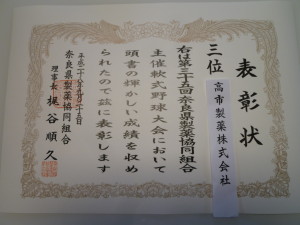 表彰状
高市製薬株式会社
三位
右は第三十五回奈良県製薬協同組合
主催軟式野球大会において
頭書の輝かしい成績を収め
られたので茲に表彰します
奈良県製薬協同組合
理事長 梶谷順久